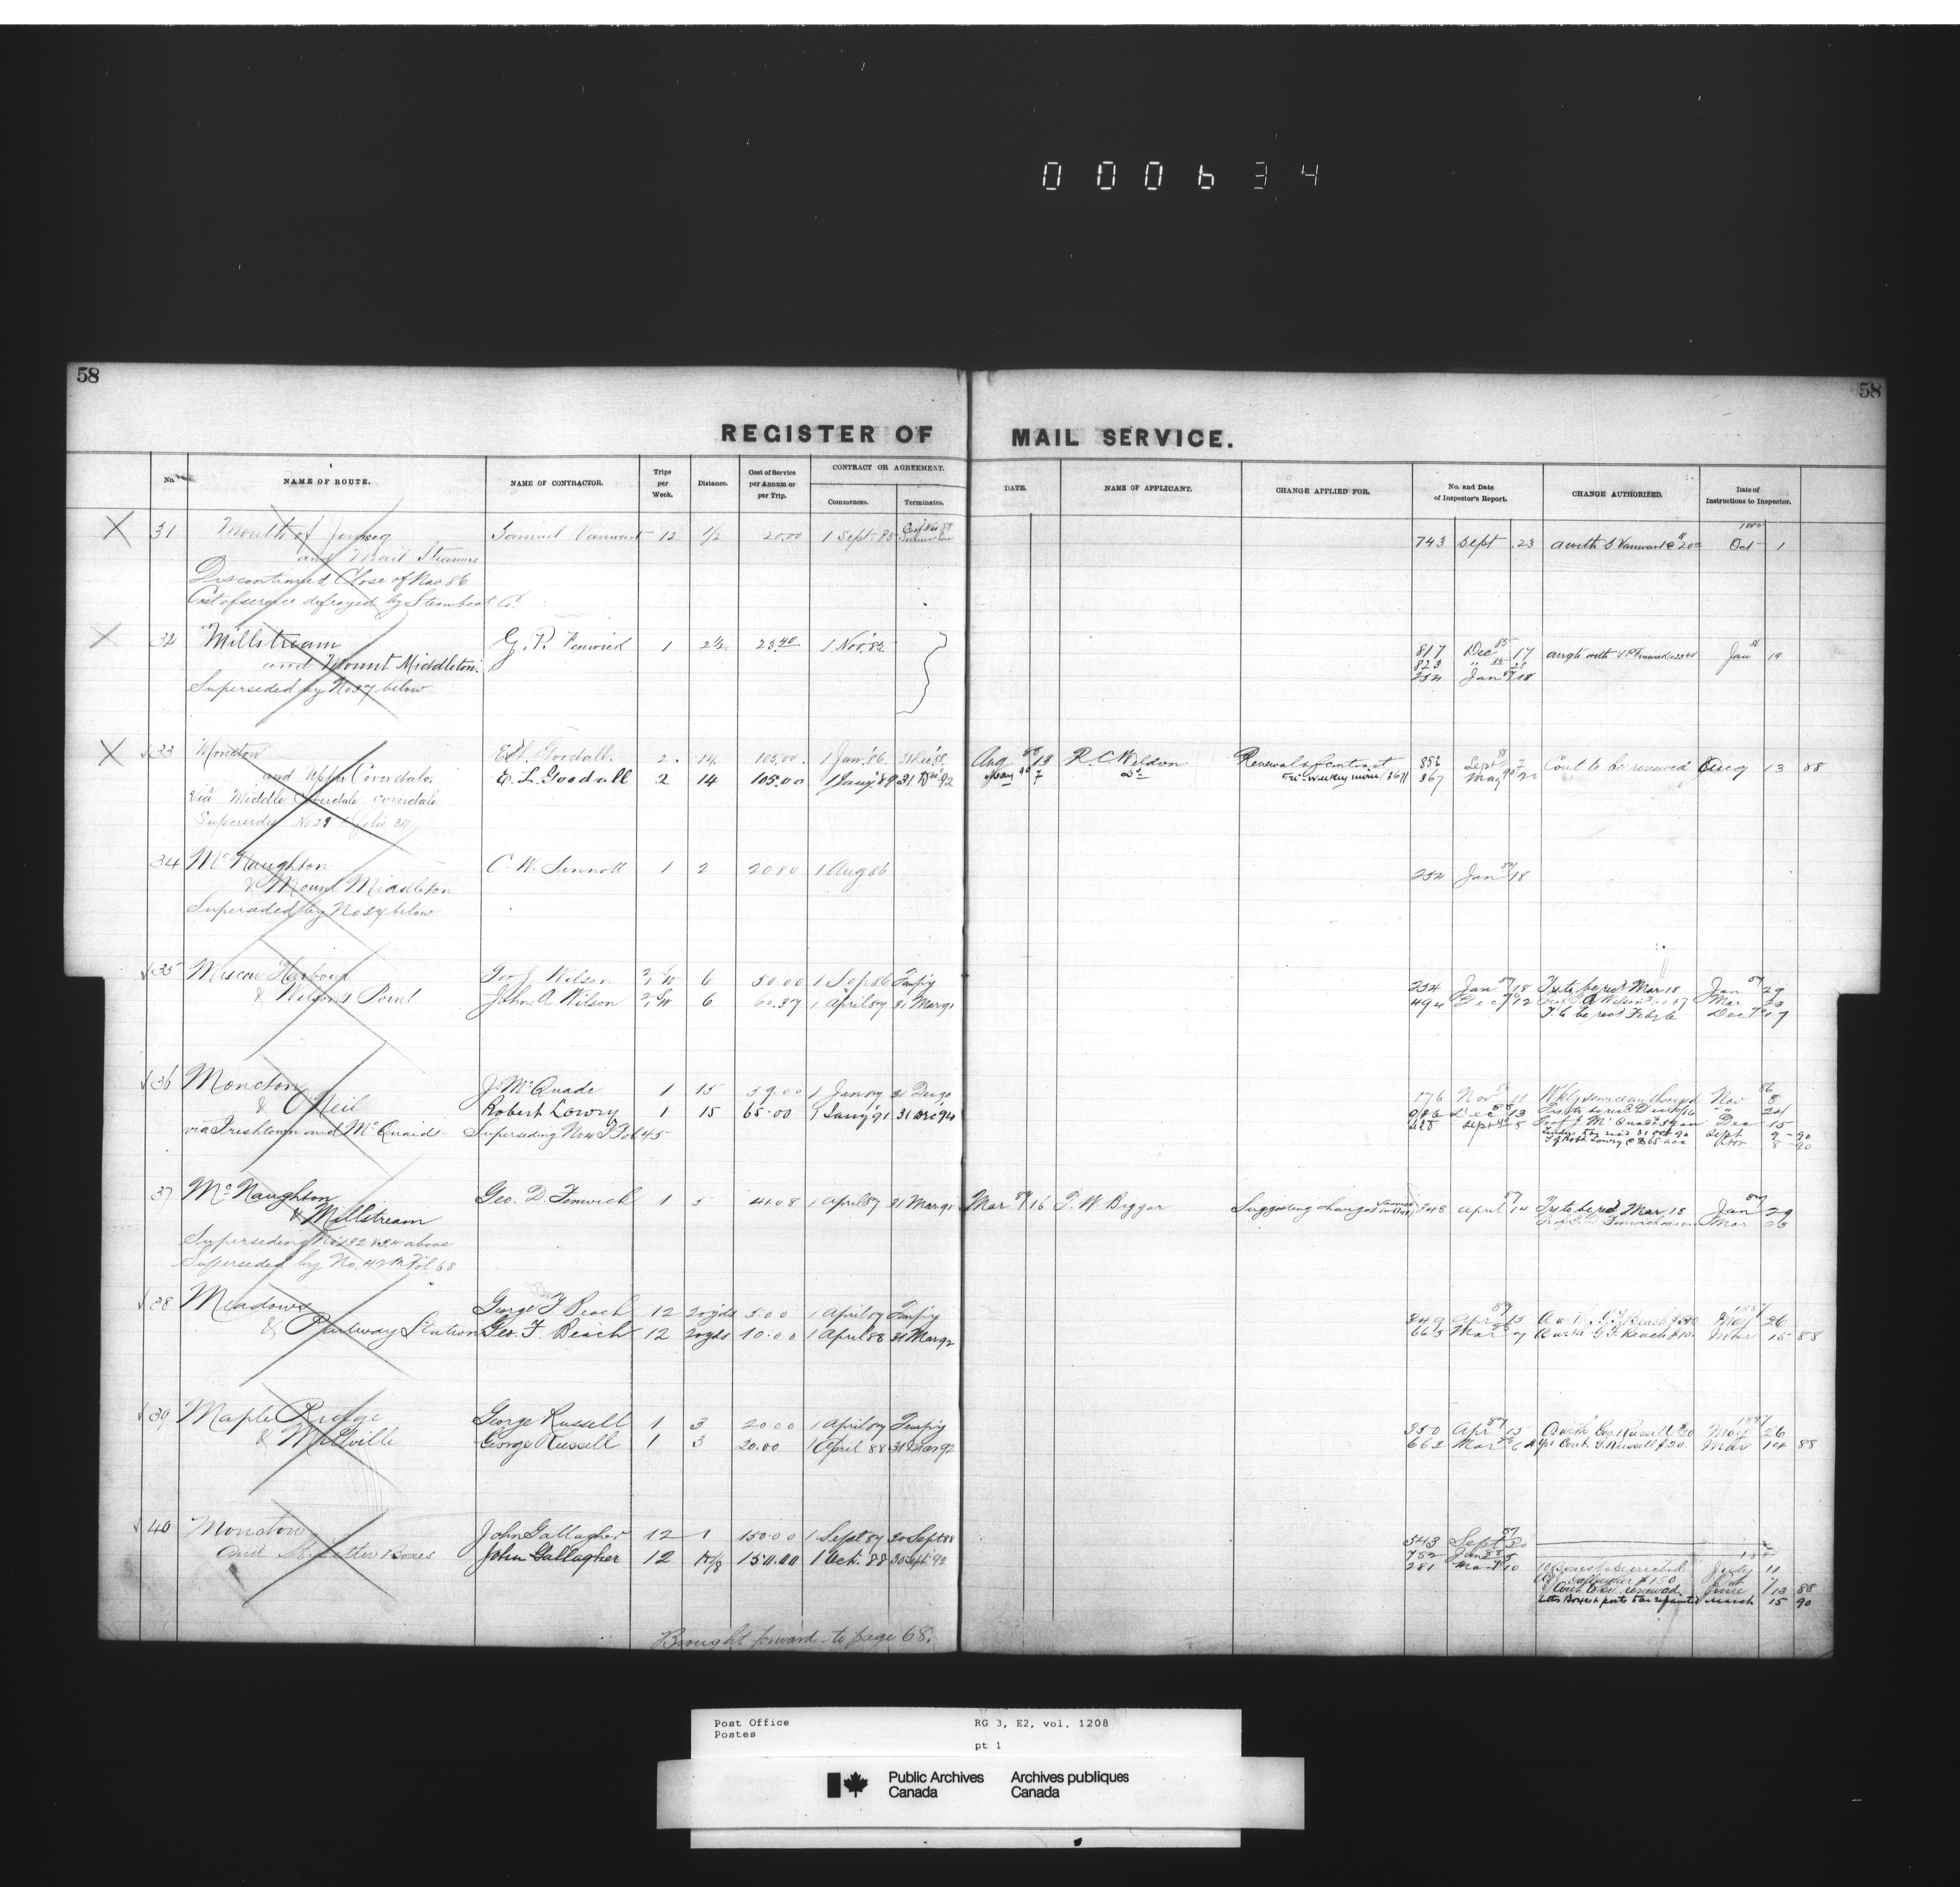 000634
58
58
REGISTER OF MAIL SERVICE.
No. NAME OF ROUTE. NAME OF CONTRACTOR. Trips per Week. Distance. Cost of Service per Annum or per Trip. CONTRACT OR AGREEMENT. Commences. Terminates. DATE. NAME OF APPLICANT. CHANGE APPLIED FOR. No. and Date of Inspector's Report. CHANGE AUTHORIZED. Date of Instructions to Inspector.
31 Mouth of Jemseg Samuel Vanwart 12 1/2 20.00 1 Sept. 85
and Mail Steamers 743 Sept 23 a with S Vanwart @ $20 Oct 1
Discontinued Close of Nov 86
Cost of service defrayed by Steamboat Co.
32 Millstream G. P. Fenwick 1 2½ 23.40 1 Nov. 85 817 Dec 85 17 Jan 86 19
and Mount Middleton. 823
Superseded by No 37 below 232 Jan 87 18
33 Moncton E. L. Goodall 2 14 105.00 1 Jan. 86 31 Dec 88 Aug 88 13 R. C. Weldon Renewal of contract 856 Sept 7 Cont to be renewed Aug 13 88
and Upper Coverdale. E. L. Goodall 2 14 105.00 1 Jany 89 31 Dec 92 May 90 7 Do 867 May 90 20
via Middle Coverdale, Coverdale
Supersedes No 29 folio 34
34 McNaughton C. W. Sinnott 1 2 20.80 1 Aug 86
& Mount Middleton 232 Jan 87 18
Superseded by No 37 below
35 Miscou Harbour Geo J. Wilson 6 50.00 1 Sep 86 Tempy
& Wilson's Point John A Wilson 6 60.37 1 April 87 31 Mar 91 234 Jan 87 18 Trs to be recd Mar 18 Jan 87 29
494 Dec 12 Mar 23
Dec 17
36 Moncton J. McQuade 1 15 59.00 1 Jan 87 31 Dec 90 176 Nov 11 Nov 86 8
& O'Neil Robert Lowry 1 15 65.00 1 Jany 91 31 Dec 94 Dec 13 24
via Irishtown and McQuaids Superseding No 4 Fol 45 Sept 5 Dec 15
Sept 9 - 90
Nov 8 - 90
37 McNaughton Geo. D. Fenwick 1 5 41.08 1 April 87 31 Mar 91 Mar 87 16 T. W. Biggar Suggesting changes 348 April 87 14 Trs to be recd Mar 18 Jan 87 29
& Millstream Mar 23
Superseding Nos 32 & 34 above
Superseded by No. 42 Fol. 68
38 Meadows George F. Beach 12 20 yds 5.00 1 April 87 Tempy 349 Apr 87 15 May 1887 26
& Railway Station Geo. F. Beach 12 20 yds 10.00 1 April 88 31 Mar 92 663 Mar 7 a with G F Beach $10. Mar 15 88
39 Maple Ridge George Russell 1 3 20.00 1 April 87 Tempy 350 Apr 87 15 a with Geo. Russell $20 May 1887 26
& Millville George Russell 1 3 20.00 1 April 88 31 Mar 92 662 Mar 6 4 yrs Cont. G. Russell $20. Mar 14 88
40 Moncton John Gallagher 12 1 150.00 1 Sept 87 30 Sept 88 343 Sept 87 30
and Letter Boxes John Gallagher 12 150.00 1 Oct. 88 30 Sept. 92 752 June 88 5
281 Mar 90 10 10 Boxes to be erected July 11
Gallagher $150 Oct 7
Cont to be renewed June 13 88
Letter Boxes & posts to be repainted March 15 90
Brought forward to page 68.
Post Office RG 3, E2, vol. 1208
Postes
pt 1
Public Archives Archives publiques
Canada Canada